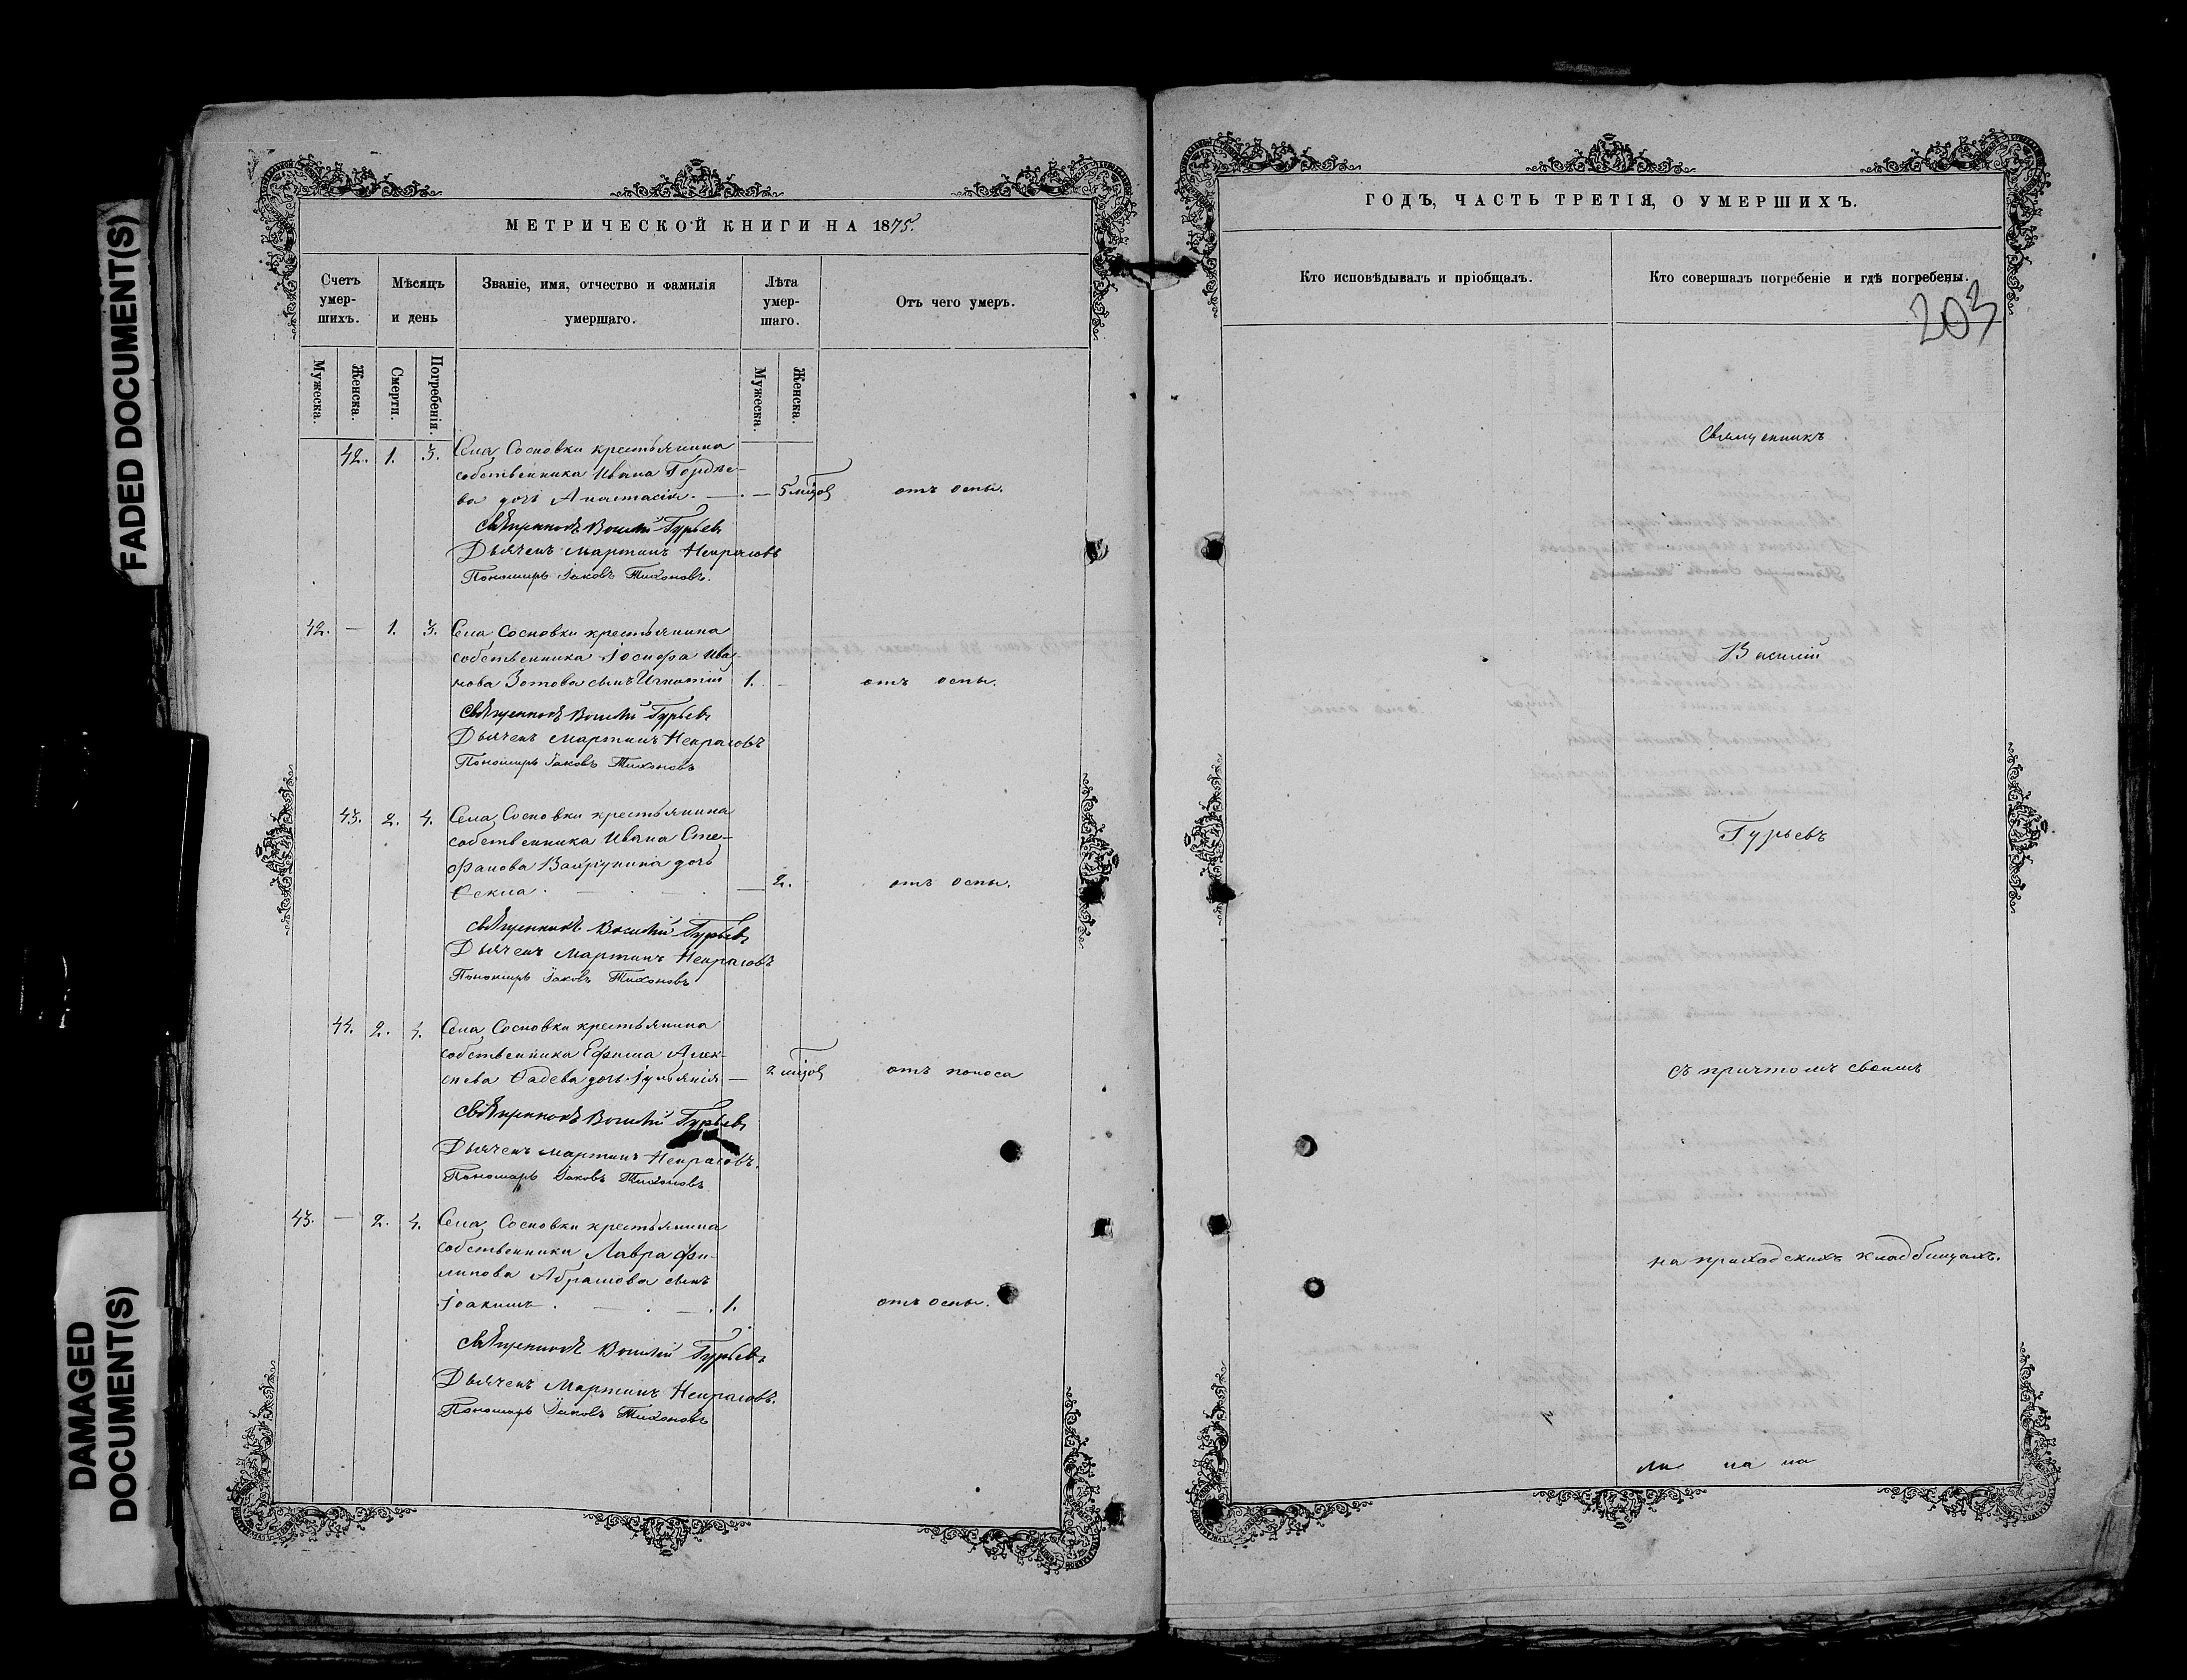 FADED DOCUMENT(S)
DAMAGED
DOCUMENT(S)
МЕТРИЧЕСКОЙ КНИГИ НА 1875.
Счетъ
умер-
шихъ.
Мѣсяцъ
и день
Званіе, имя, отчество и фамилія
умершаго.
Лѣта
умер-
шаго.
Отъ чего умеръ.
Мужеска.
Женска.
Смерти.
Погребенія.
Мужеска.
Женска.
42. 1. 3. Села Сосновки крестьянина
собственника Ивана Гордѣе-
ва дочь Анастасія. — 5 мѣсяц отъ оспы.
Священникъ Василій Гурьевъ
Дьячекъ Мартинъ Некрасовъ
Пономарь Іаковъ Тихоновъ.
42. — 1. 3. Села Сосновки крестьянина
собственника Іосифа Ива-
нова Зотова сынъ Игнатій 1. — отъ оспы.
Священникъ Василій Гурьевъ
Дьячекъ Мартинъ Некрасовъ
Пономарь Іаковъ Тихоновъ
43. 2. 4. Села Сосновки крестьянина
собственника Ивана Сте-
фанова дочь
Ѳекла. — 2. отъ оспы.
Священникъ Василій Гурьевъ
Дьячекъ Мартинъ Некрасовъ
Пономарь Іаковъ Тихоновъ
44. 2. 4. Села Сосновки крестьянина
собственника Ефима Алек-
сѣева Ѳадева дочь Іуліанія — 2 мѣсяц отъ поноса
Священникъ Василій Гурьевъ
Дьячекъ Мартинъ Некрасовъ.
Пономарь Іаковъ Тихоновъ
43. — 2. 4. Села Сосновки крестьянина
собственника Лавра Фи-
липова Абрамова сынъ
Іоакимъ. — 1. отъ оспы.
Священникъ Василій Гурьевъ
Дьячекъ Мартинъ Некрасовъ.
Пономарь Іаковъ Тихоновъ
ГОДЪ, ЧАСТЬ ТРЕТІЯ, О УМЕРШИХЪ.
Кто исповѣдывалъ и пріобщалъ.
Кто совершалъ погребеніе и гдѣ погребены.
203
Священникъ
Василій
Гурьевъ
съ причтомъ своимъ
на приходскихъ кладбищахъ.